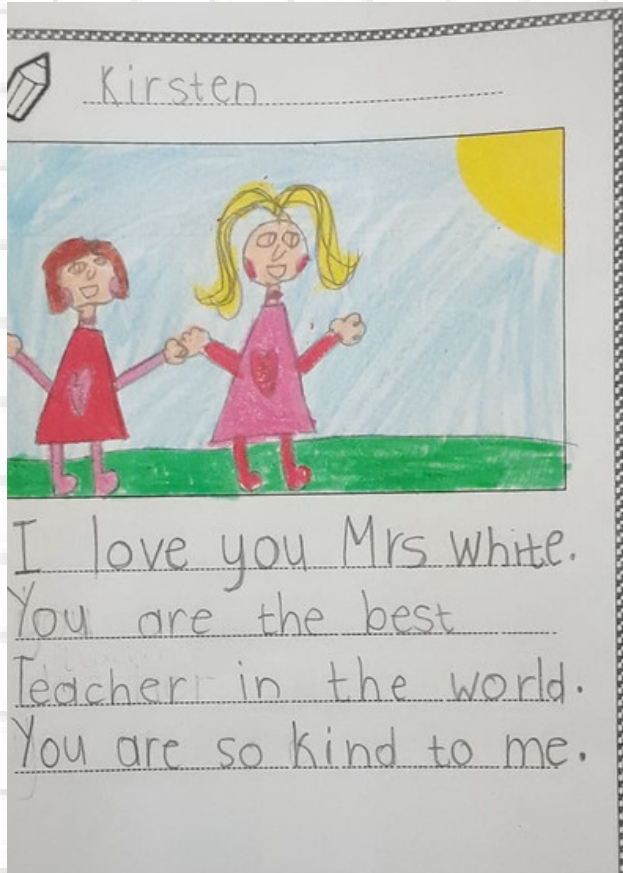 Kirsten
I love you Mrs White.
You are the best
Teacher in the world.
You are so kind to me.